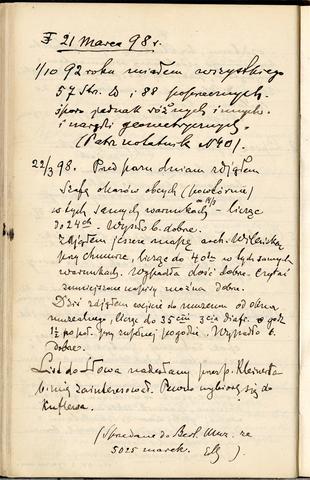 21 Marca 98 r.
1/10 92 roku miałem wszystkiego
57 Str. D i 88 poprzecznych.
sporo jednak różnych innych
i narzędzi geometrycznych.
(Patrz notatnik No 40).
22/3 98. Przed paru dniami zdjąłem
szafę okazów obcych (powtórnie)
w tych samych warunkach licząc
do 24 ch. Wyszło b. dobre.
Zdjąłem jeszcze mapę arch. Wileńską
przy chmurze, licząc do 40 w tych samych
warunkach. Wypadła dość dobrze. Czytać
zmniejszone napisy można dobrze.
Dziś zdjąłem wejście do muzeum od okna
muzealnego, licząc do 35 3cia diafr. o godz
1½ popoł. przy zupełnej pogodzie. Wypadło b.
dobrze.
List do Słowa nadesłany przez p. Kleinerta
b. mię zainteresował. Pewno wybiorę się do
Kuflewa.
(Sprzedane do Berl. Muz. za
5025 marek. )